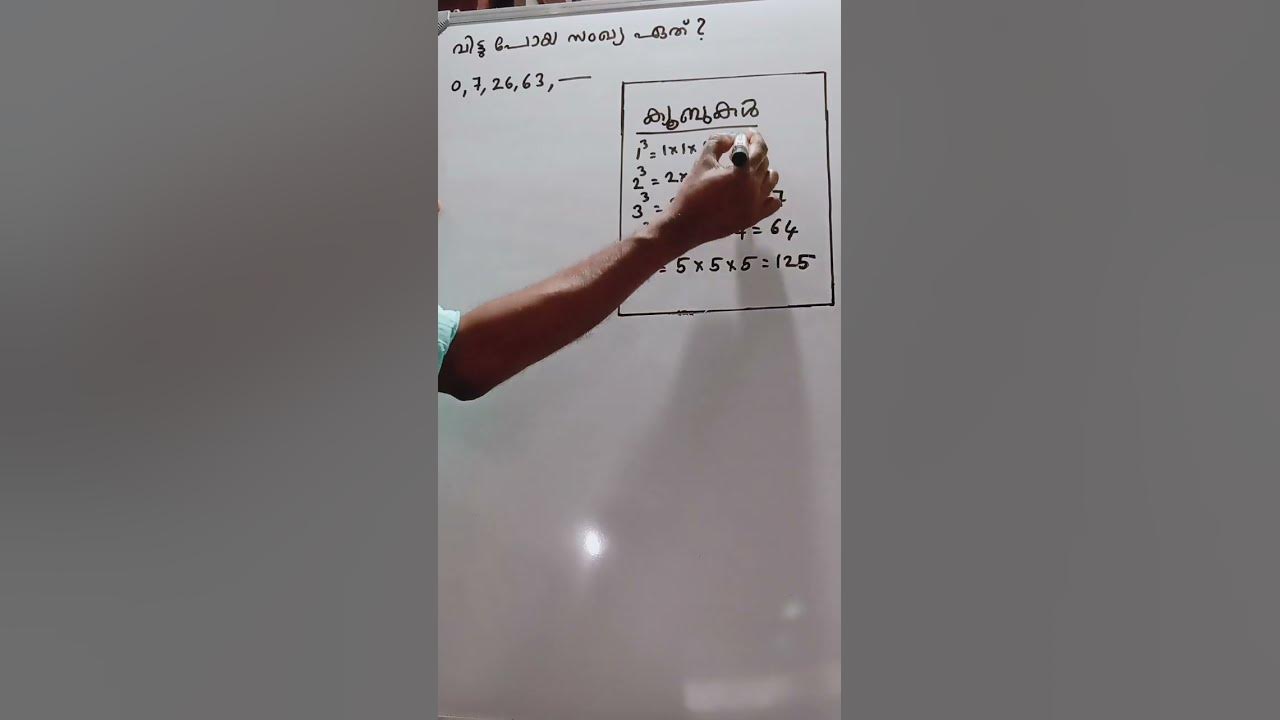 വിട്ടു പോയ സംഖ്യ ഏത് ?
0, 7, 26, 63, —
ക്യൂബുകൾ
1³ = 1 × 1 ×
2³ = 2 ×
3³ =
4 = 64
= 5 × 5 × 5 = 125